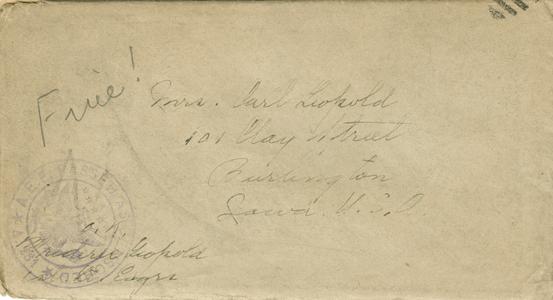 Free!
Mrs. Carl Leopold
101 Clay Street
Burlington
Iowa. U.S.A
O.K.
Frederic Leopold
Engrs
A.E.F.